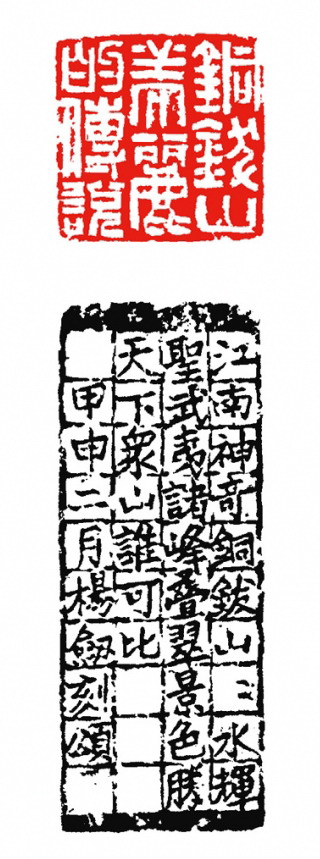 銅鈸山
美麗
的傳說
江南神奇銅鈸山〻水輝
聖武夷諸峰叠翠景色勝
天下衆山誰可比
甲申二月楊劒刻頌